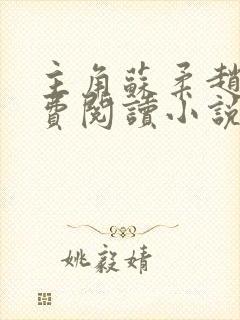 主角蘇柔趙
費閱讀小說
姚毅婧